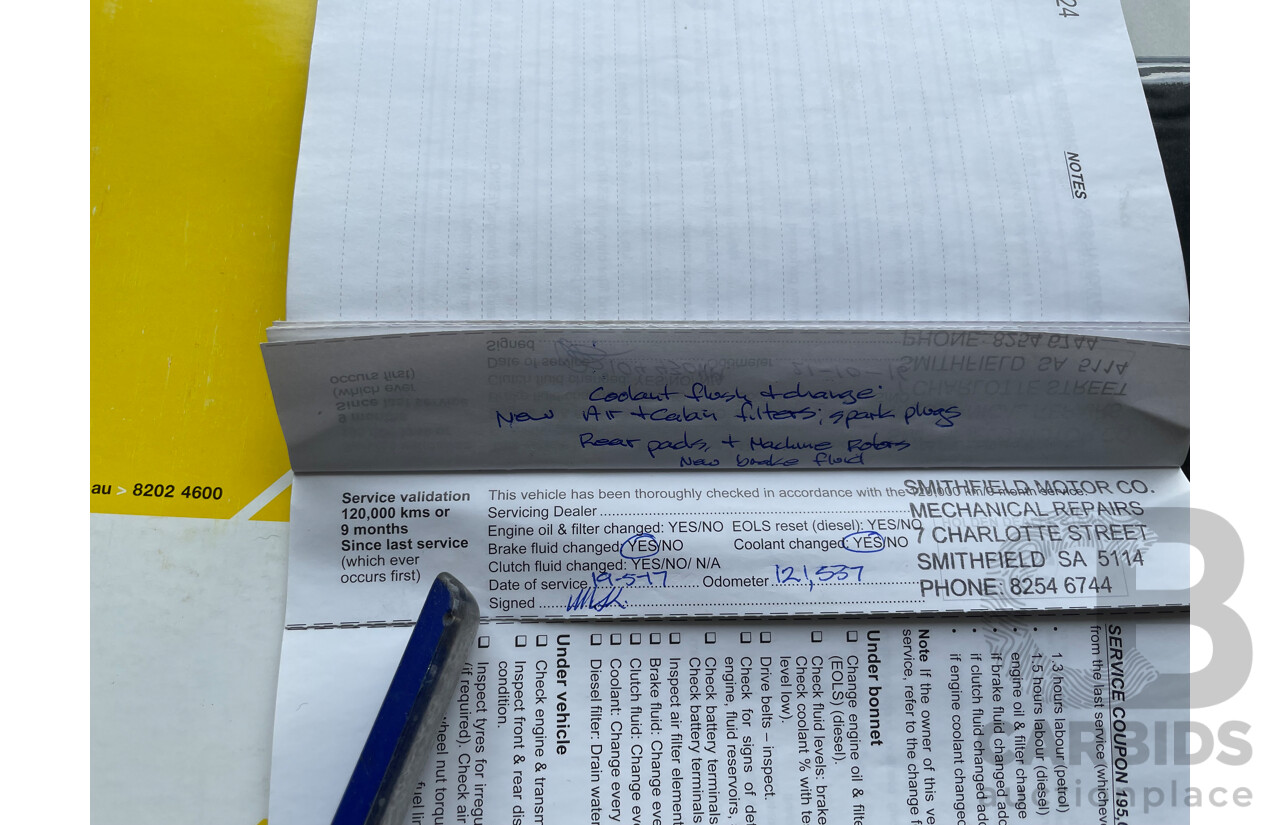 24
NOTES
PHONE: 8254 6744
Signed
SMITHFIELD SA 5114
Date of service
Odometer
21-10-16
CHARLOTTE STREET
Clutch fluid changed: YES/NO/N/A
occurs first)
(which ever
Since last service
9 m
Coolant flush + change.
New Air + Cabin filters; spark plugs
Rear pads, + Machine Rotors
New brake fluid
au > 8202 4600
Service validation
120,000 kms or
9 months
Since last service
(which ever
occurs first)
This vehicle has been thoroughly checked in accordance with the 120,000 km/9 month service.
Servicing Dealer
Engine oil & filter changed: YES/NO EOLS reset (diesel): YES/NO
Brake fluid changed: YES/NO Coolant changed: YES/NO
Clutch fluid changed: YES/NO/ N/A
Date of service 19-5-17 Odometer 121,537
Signed
SMITHFIELD MOTOR CO.
MECHANICAL REPAIRS
7 CHARLOTTE STREET
SMITHFIELD SA 5114
PHONE: 8254 6744
SERVICE COUPON 195,
from the last service (whicheve
• 1.3 hours labour (petrol)
• 1.5 hours labour (diesel)
• engine oil & filter change
• if brake fluid changed add
• if clutch fluid changed add
• if engine coolant changed
Note If the owner of this ve
service, refer to the change f
Under bonnet
❑ Change engine oil & filt
(EOLS) (diesel).
❑ Check fluid levels: brake
Check coolant % with te
level low).
❑ Drive belts – inspect.
❑ Check for signs of def
engine, fluid reservoirs,
❑ Check battery terminals
Check battery terminals
❑ Inspect air filter element
❑ Brake fluid: Change eve
❑ Clutch fluid: Change eve
❑ Coolant: Change every
❑ Diesel filter: Drain water
Under vehicle
❑ Check engine & transm
❑ Inspect front & rear dis
condition.
❑ Inspect tyres for irregu
(if required). Check air
wheel nut torqu
fuel lin
CARBIDS
auctionplace